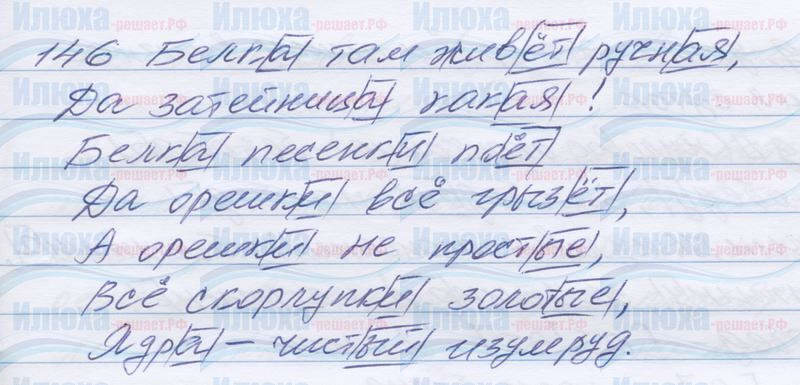 146 Белка там живёт ручная,
Да затейница какая!
Белка песенки поёт
Да орешки всё грызёт,
А орешки не простые,
Всё скорлупки золотые,
Ядра – чистый изумруд.